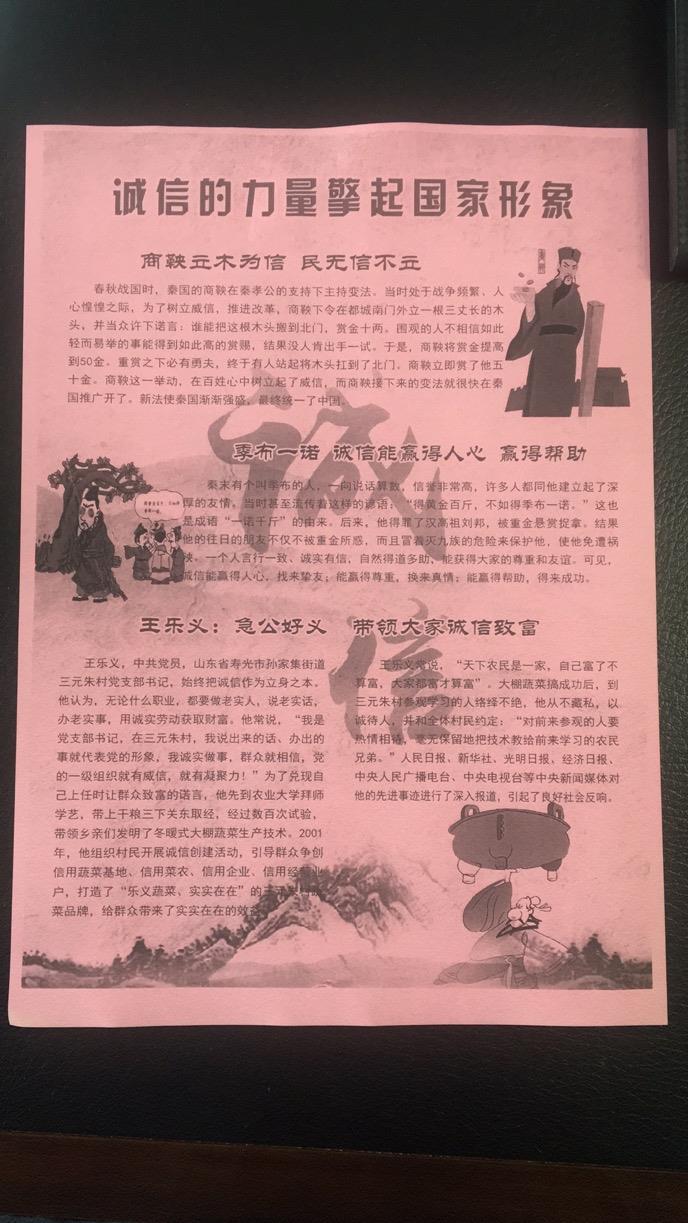 诚信的力量擎起国家形象
商鞅立木为信 民无信不立
春秋战国时，秦国的商鞅在秦孝公的支持下主持变法。当时处于战争频繁、人
心惶惶之际，为了树立威信，推进改革，商鞅下令在都城南门外立一根三丈长的木
头，并当众许下诺言：谁能把这根木头搬到北门，赏金十两。围观的人不相信如此
轻而易举的事能得到如此高的赏赐，结果没人肯出手一试。于是，商鞅将赏金提高
到50金。重赏之下必有勇夫，终于有人站起将木头扛到了北门。商鞅立即赏了他五
十金。商鞅这一举动，在百姓心中树立起了威信，而商鞅接下来的变法就很快在秦
国推广开了。新法使秦国渐渐强盛，最终统一了中国。
诚
季布一诺 诚信能赢得人心 赢得帮助
秦末有个叫季布的人，一向说话算数，信誉非常高，许多人都同他建立起了深
厚的友情。当时甚至流传着这样的谚语：“得黄金百斤，不如得季布一诺。”这也
是成语“一诺千斤”的由来。后来，他得罪了汉高祖刘邦，被重金悬赏捉拿。结果
他的往日的朋友不仅不被重金所惑，而且冒着灭九族的危险来保护他，使他免遭祸
殃。一个人言行一致、诚实有信，自然得道多助，能获得大家的尊重和友谊。可见，
诚信能赢得人心，找来挚友；能赢得尊重，换来真情；能赢得帮助，得来成功。
信
王乐义：急公好义 带领大家诚信致富
王乐义，中共党员，山东省寿光市孙家集街道
三元朱村党支部书记，始终把诚信作为立身之本。
他认为，无论什么职业，都要做老实人，说老实话，
办老实事，用诚实劳动获取财富。他常说，“我是
党支部书记，在三元朱村，我说出来的话、办出的
事就代表党的形象，我诚实做事，群众就相信，党
的一级组织就有威信，就有凝聚力！”为了兑现自
己上任时让群众致富的诺言，他先到农业大学拜师
学艺，带上干粮三下关东取经，经过数百次试验，
带领乡亲们发明了冬暖式大棚蔬菜生产技术。2001
年，他组织村民开展诚信创建活动，引导群众争创
信用蔬菜基地、信用菜农、信用企业、信用经营业
户，打造了“乐义蔬菜、实实在在”的三元朱村蔬
菜品牌，给群众带来了实实在在的效益。
王乐义常说，“天下农民是一家，自己富了不
算富，大家都富才算富”。大棚蔬菜搞成功后，到
三元朱村参观学习的人络绎不绝，他从不藏私，以
诚待人，并和全体村民约定：“对前来参观的人要
热情相待，毫无保留地把技术教给前来学习的农民
兄弟。”人民日报、新华社、光明日报、经济日报、
中央人民广播电台、中央电视台等中央新闻媒体对
他的先进事迹进行了深入报道，引起了良好社会反响。